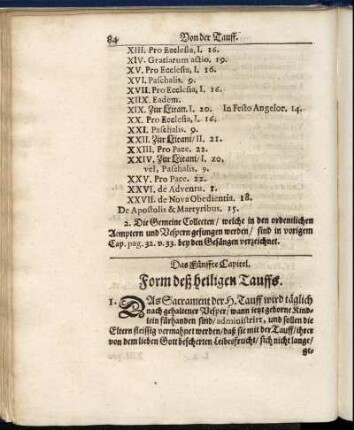 84 Von der Tauff.
XIII. Pro Ecclesia, I. 16.
XIV. Gratiarum actio. 19.
XV. Pro Ecclesia, I. 16.
XVI. Paschalis. 9.
XVII. Pro Ecclesia, I. 16.
XIIX. Eadem.
XIX. Zur Litan. I. 20. In Festo Angelor. 14.
XX. Pro Ecclesia, I. 16.
XXI. Paschalis. 9.
XXII. Zur Litani/ II. 21.
XXIII. Pro Pace. 22.
XXIV. Zur Litani/ I. 20.
vel, Paschalis. 9.
XXV. Pro Pace. 22.
XXVI. de Adventu. 1.
XXVII. de Nova Obedientia. 18.
De Apostolis & Martyribus. 15.
2. Die Gemeine Collecten/ welche in den ordentlichen
Aemptern und Vespern gesungen werden/ sind in vorigem
Cap. pag. 32. v. 33. bey den Gesängen verzeichnet.
Das Fünffte Capitel.
Form deß heiligen Tauffs.
1. DAs Sacrament der H. Tauff wird täglich
nach gehaltener Vesper/ wann jetzt geborne Kind-
lein fürhanden sind/ administriert, und sollen die
Eltern fleissig vermahnet werden/ daß sie mit der Tauff/ ihrer
von dem lieben Gott bescherten Leibesfrucht/ sich nicht lange/
ge-